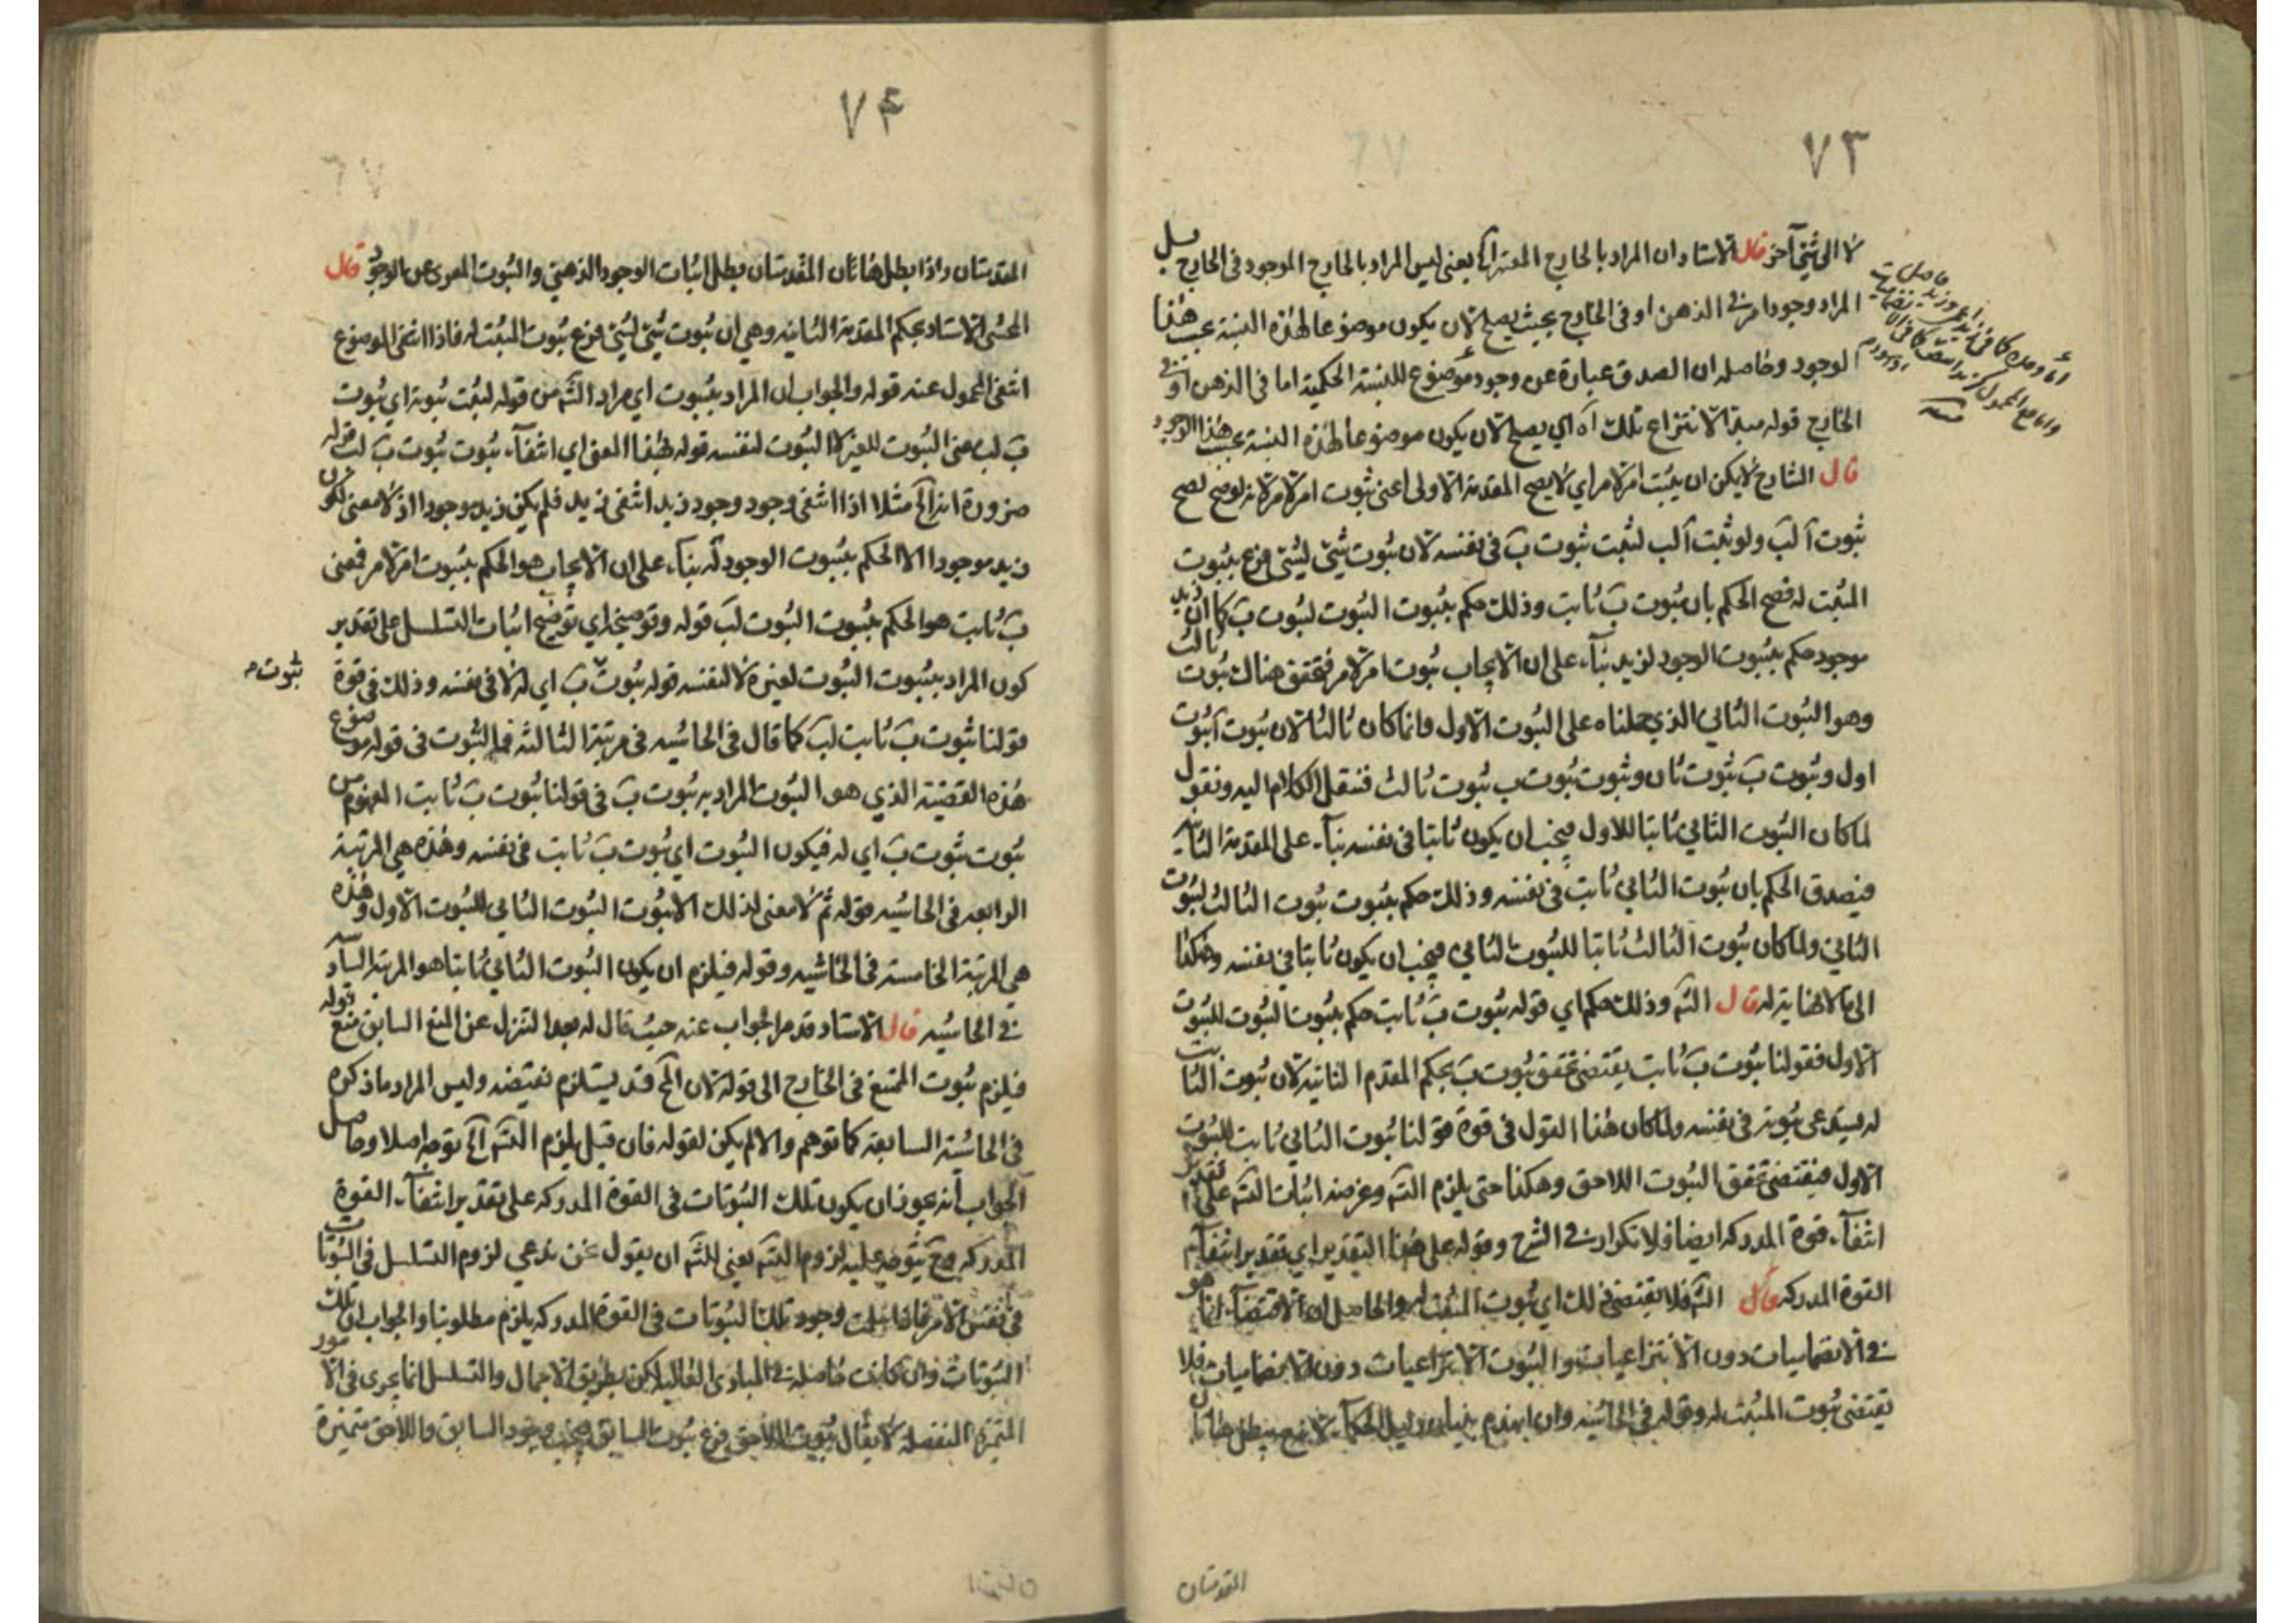 ٧٣
لا الى شيء آخر قال الاستاد ان المراد بالخارج المعتبر آه يعني ليس المراد بالخارج الموجود في الخارج بل
المراد وجود امر في الذهن او في الخارج بحيث يصلح لان يكون موضوعا لهذه النسبة بحسب هذا
الوجود وحاصله ان الصدق عبارة عن وجود موضوع للنسبة الحكمية اما في الذهن او في
الخارج قوله مبدأ لانتزاع تلك آه اي يصلح لان يكون موضوعا لهذه النسبة بحسب هذا الوجود
قال الشارح لا يمكن ان يثبت امر لامر اي لا يصح المقدمة الاولى اعني ثبوت امر لامر لانه لو صح لصح
ثبوت آ لب ولو ثبت آ لب لثبت ثبوت ب في نفسه لان ثبوت شيء لشيء فرع بثبوت
المثبت له فصح الحكم بان ثبوت ب ثابت وذلك حكم بثبوت الثبوت لثبوت ب كما ان زيد
موجود حكم بثبوت الوجود لزيد بناء على ان الايجاب ثبوت امر لامر فتحقق هناك ثبوت ثالث
وهو الثبوت الثاني الذي حملناه على الثبوت الاول وانما كان ثالثا لان ثبوت آ ثبوت
اول وثبوت ب ثبوت ثان وثبوت ثبوت ب ثبوت ثالث فننقل الكلام اليه ونقول
لما كان الثبوت الثاني ثابتا للاول فيجب ان يكون ثابتا في نفسه بناء على المقدمة الثانية
فيصدق الحكم بان ثبوت الثاني ثابت في نفسه وذلك حكم بثبوت ثبوت الثالث لثبوت
الثاني ولما كان ثبوت الثالث ثابتا للثبوت الثاني فيجب ان يكون ثابتا في نفسه وهكذا
الى ما لا نهاية له قال الشم وذلك حكم اي قوله ثبوت ب ثابت حكم بثبوت الثبوت للثبوت
الاول فقولنا ثبوت ب ثابت يقتضي تحقق ثبوت ب بحكم المقدم الثانية لان ثبوت الثابت
له يستدعي ثبوته في نفسه ولما كان هذا القول في قوة قولنا ثبوت الثاني ثابت للثبوت
الاول فيقتضي تحقق الثبوت اللاحق وهكذا حتى يلزم التسم وغرضه اثبات التسم على تقدير
انتفاء قوة المدركه ايضا فلا تكرار في الشرح وقوله على هذا التقدير اي تقدير انتفاء
القوة المدركه قال الشم فلا يقتضي ذلك اي ثبوت المثبت له والحاصل ان الاقتضاء انما هو
في الانضماميات دون الانتزاعيات والثبوت الانتزاعيات دون الانضماميات فلا
يقتضي ثبوت المثبت له وقوله في الحاشيه وان انهدم بنيان دليل الحكماء
المقدمتان
٧۴
المقدمتان واذا بطل هاتان المقدمتان بطل اثبات الوجود الذهني والثبوت المعرى عن الوجود قال
المحشى الاستاد بحكم المقدمة الثانيه وهي ان ثبوت شيء لشيء فرع ثبوت المثبت له فاذا انتفى الموضوع
انتفى المحمول عنه قوله والجواب ان المراد بثبوت اي مراد الشم من قوله لثبت ثبوته اي ثبوت
ب لب عنى الثبوت للغير لا الثبوت لنفسه قوله بهذا المعنى اي انتفاء ثبوت ثبوت ب لب قوله
ضرورة انه الخ مثلا اذا انتفى وجود وجود زيد انتفى زيد فلم يكن زيد موجودا اذ لا معنى لكون
زيد موجودا الا الحكم بثبوت الوجود له بناء على ان الايجاب هو الحكم بثبوت امر لامر فمعنى
ب ثابت هو الحكم بثبوت الثبوت لب قوله وتوضيحه اي توضيح اثبات التسلسل على تقدير
كون المراد بثبوت الثبوت لغيره لا لنفسه قوله ثبوت ب اي له لا في نفسه وذلك في قوة
ثبوت
قولنا ثبوت ب ثابت لب كما قال في الحاشيه في مرتبة الثالثه فما الثبوت في قوله موضوع
هذه القضية الذي هو الثبوت المراد به ثبوت ب في قولنا ثبوت ب ثابت المفهوم من
ثبوت ثبوت ب اي له فيكون الثبوت اي ثبوت ب ثابت في نفسه وهذه هي المرتبة
الرابعه في الحاشيه قوله ثم لا معنى لذلك الا ثبوت الثبوت الثاني للثبوت الاول وهذه
هي المرتبة الخامسة في الحاشيه وقوله فيلزم ان يكون الثبوت الثاني ثابتا هو المرتبة السادسة
في الحاشيه قال الاستاد قد مر الجواب عنه حيث قال له بعد التنزل عن المنع السابق منع قوله
فيلزم ثبوت الممتنع في الخارج الى قوله لان المح قد يستلزم نقيضه وليس المراد ما ذكره
في الحاشية السابقة كما توهم والا لم يكن لقوله فان قيل يلزم التسم آه توجه اصلا وحاصل
الجواب انه يجوز ان يكون تلك الثبوتات في القوة المدركه على تقدير انتفاء القوة
المدركه وح يتوجه عليه لزوم التسم يعني للشم ان يقول نحن ندعي لزوم التسلسل في الثبوتات
في نفس الامر فاذا سلمت وجود تلك الثبوتات في القوة المدركه يلزم مطلوبنا والجواب ان تلك
الثبوتات وان كانت حاصلة في المبادى العاليه لكن بطريق الاجمال والتسلسل انما يجرى في الامور
المتميزة المنفصله لا يقال ثبوت اللاحق فرع ثبوت السابق فيجب وجود السابق واللاحق متميزة